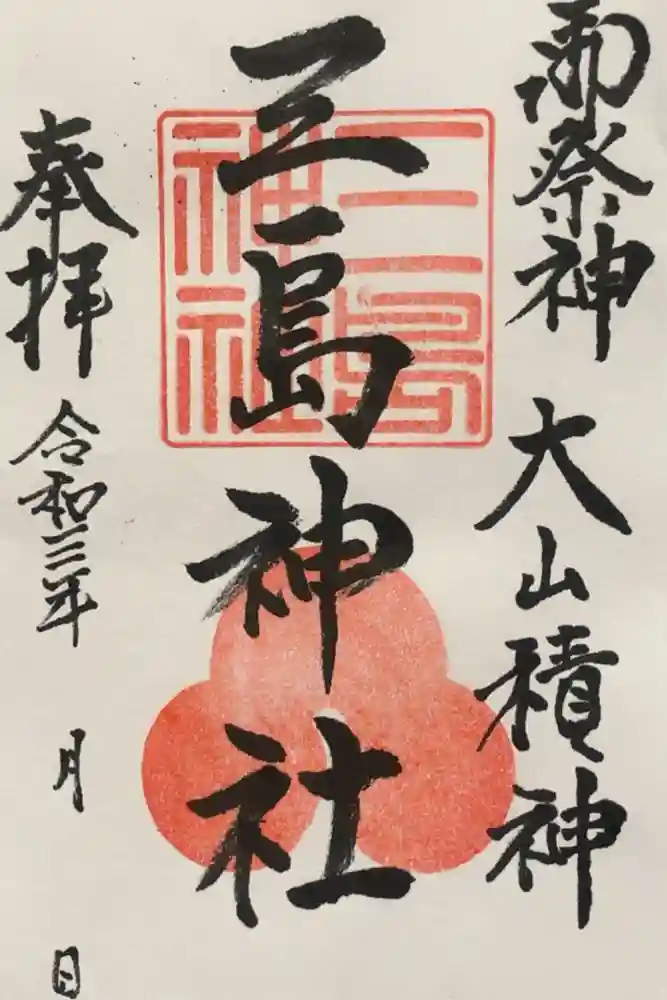 御祭神 大山積神
三島神社
三島
神社
奉拝
令和三年 月 日